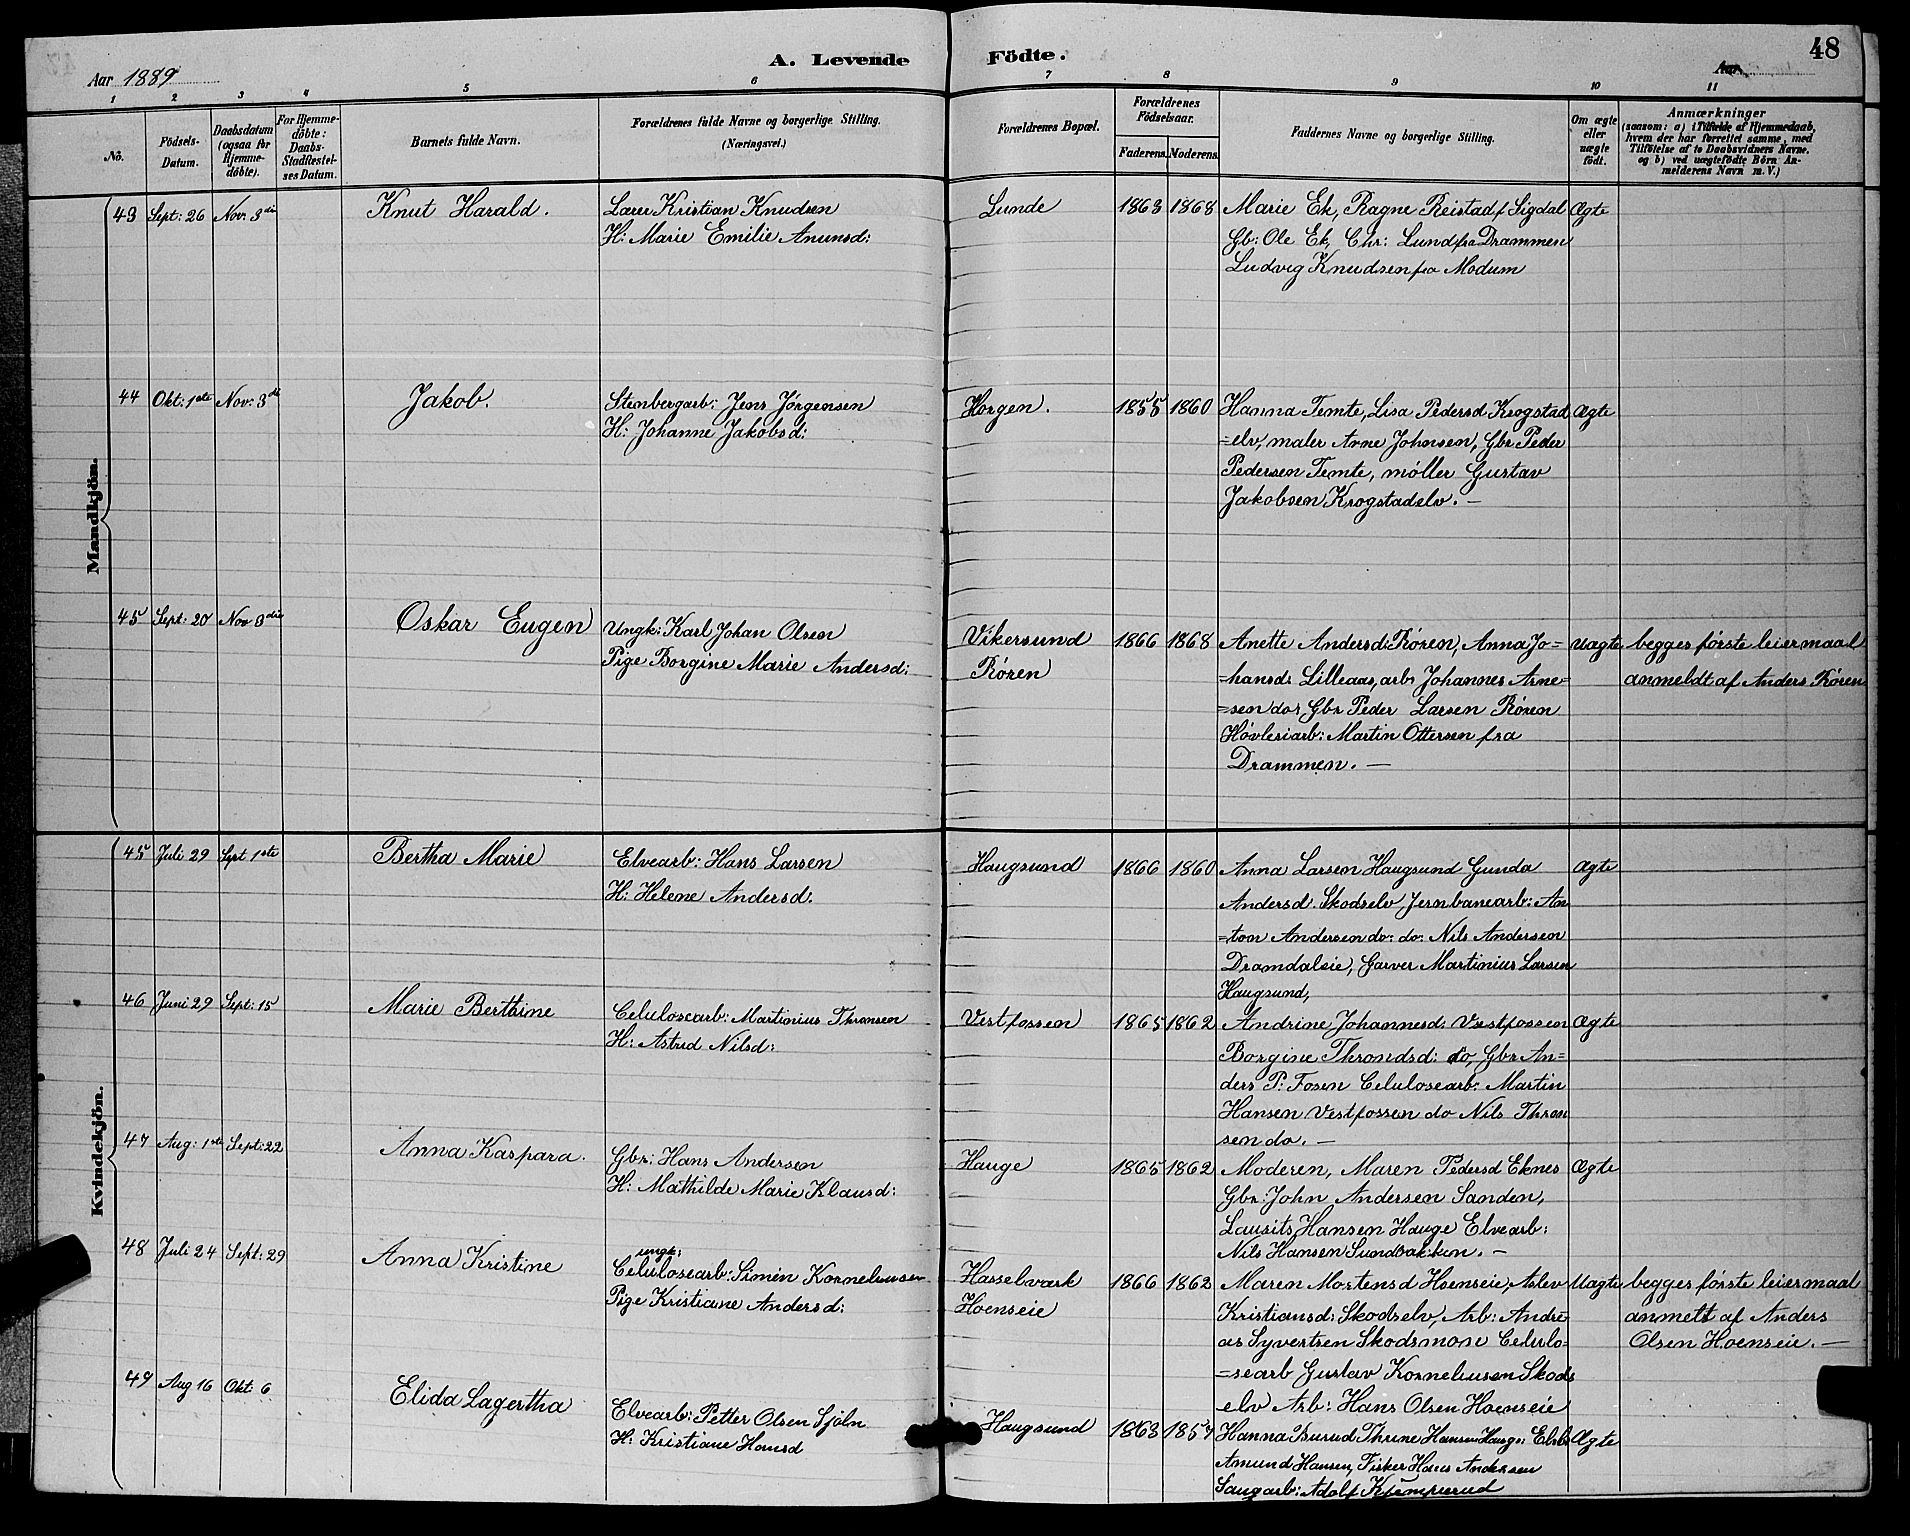 Aar 1889
A. Levende
Födte.
48
Aar
1 2 3 4 5 6 7 8 9 10 11
No.
Födsels-Datum.
Daabsdatum (ogsaa for Hjemme-döbte).
For Hjemme-döbte: Daabs-Stadfæstel-ses Datum.
Barnets fulde Navn.
Forældrenes fulde Navne og borgerlige Stilling. (Næringsvei.)
Forældrenes Bopæl.
Forældrenes Födselsaar.
Faderens. Moderens.
Faddernes Navne og borgerlige Stilling.
Om ægte eller uægte födt.
Anmærkninger
(saasom: a) i Tilfælde af Hjemmedaab,
hvem der har forrettet samme, med
Tilföielse af to Daabsvidners Navne.
og b) ved uægtefödte Börn An-
melderens Navn m. V.)
Mandkjön.
43 Sept: 26 Nov: 3die Knut Harald. Lærer Kristian Knudsen Lunde 1863 1868 Marie Ek, Ragne Reistad f Sigdal Ægte
H: Marie Emilie Amunsd: Gb: Ole Ek, Chr: Lund fra Drammen
Ludvig Knudsen fra Modum
44 Okt: 1ste Nov: 3die Jakob. Stenbergarb: Jens Jörgensen Horgen. 1855 1860 Hanna Temte, Lisa Pedersd Krogstad Ægte
H: Johanne Jakobsd: =elv, maler Arne Johnsen, Gbr Peder
Pedersen Temte, møller Gustav
Jakobsen Krogstadelv. —
45 Sept: 20 Nov 3die Oskar Eugen Ungk: Karl Johan Olsen Vikersund 1866 1868 Anette Andersd: Røren, Anna Jo= Uægte begges første leiermaal
Pige Borgine Marie Andersd: Røren =hansd: Lilleaas, arb: Johannes Arne= anmeldt af Anders Røren
=sen do, Gbr Peder Larsen Røren
Høvleriarb: Martin Ottersen fra
Drammen. —
Kvindekjön.
45 Juli 29 Sept 1ste Bertha Marie Elvearb: Hans Larsen Haugsund 1866 1860 Anna Larsen Haugsund Gunda Ægte
H: Helene Andersd. Andersd. Skodselv, Jernbanearb: An
=ton Andersen do: do: Nils Andersen
Dramdaleie, Garver Martinius Larsen
Haugsund,
46 Juni 29 Sept: 15 Marie Berthine Celulosearb: Martinius Thronsen Vestfossen 1865 1862 Andrine Johannesd: Vestfossen Ægte
H: Astrid Nilsd: Borgine Throndsd: do, Gbr An=
ders P: Fosen Celulosearb: Martin
Hansen Vestfossen do Nils Thron
sen do. —
47 Aug: 1ste Sept: 22 Anna Kaspara. Gbr: Hans Andersen Hauge 1865 1862 Moderen, Maren Pedersd Eknes Ægte
H: Mathilde Marie Klausd: Gbr: John Andersen Sanden,
Lausits Hansen Hauge Elvearb:
Nils Hansen Sundbakken. —
48 Juli 24 Sept: 29 Anna Kristine ungk: Celulosearb: Simen Korneliussen Hasselværk 1866 1862 Maren Mortensd Hoenseie, Aslev Uægte begges første leiermaal
Pige Kristiane Andersd: Hoenseie Kristiansd: Skodselv, Arb: Andre anmelt af Anders
as Syvertsen Skodsmon Celulo= Olsen Hoenseie. —
=searb Gustav Korneliusen Skods
elv Arb: Hans Olsen Hoenseie
49 Aug 16 Okt: 6 Elida Lagertha Elvearb: Petter Olsen Sjöln Haugsund 1863 1857 Hanna Burud Thrine Hansen Haugs: Elvb Ægte
H: Kristiane Hansd Amund Hansen, Fisker Hans Andersen
Saugarb: Adolf Kjemperud